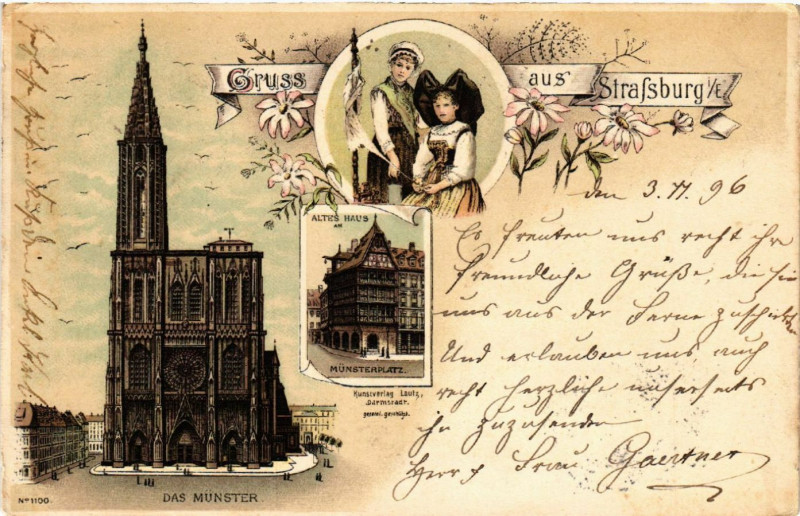 Gruss aus Straßsburg i/E
ALTES HAUS
AM
MÜNSTERPLATZ.
Kunstverlag Lautz,
Darmstadt.
gesetzl. geschützt.
DAS MÜNSTER
No 1100.
den 3. 11. 96
Es freuten uns recht ihr
freundliche Grüße, die sie
uns aus der Ferne zuschickten
Und erlauben uns, auch
recht herzliche unserseits
ihr zuzusenden
Herr & Frau Gaertner